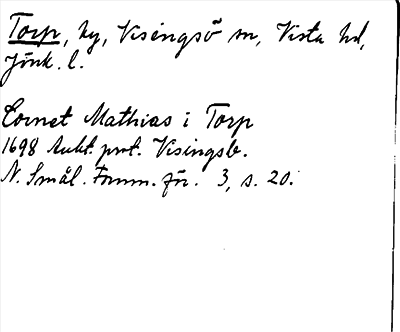 Torp, by, Visingsö sn, Vista hd,
Jönk. l.
Cornet Mathias i Torp
1698 Aukt. prot. Visingsb.
N. Smål. Fornm. för. 3, s. 20.